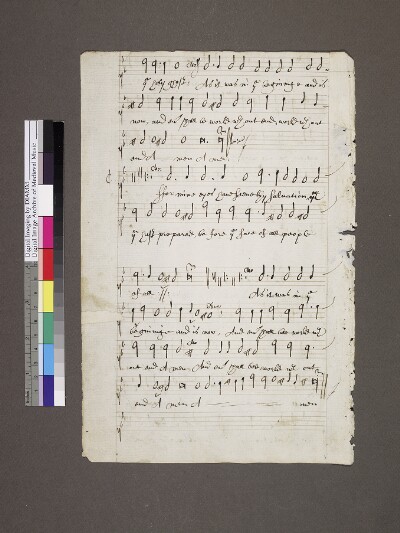 Digital Imaging by DIAMM
Digital Image Archive of Medieval Music
ye holy ghost As it was in ye beginninge and is
now, and ever shall be world wth out end, world wth out
end A men A men
For mine eyes have seene thy salvation
ye hast prepared be fore ye face of all people
of all As it was in ye
beginning and is now, And ever shall bee world wth
out end A men, And ever shall bee world wth out
end A men A men